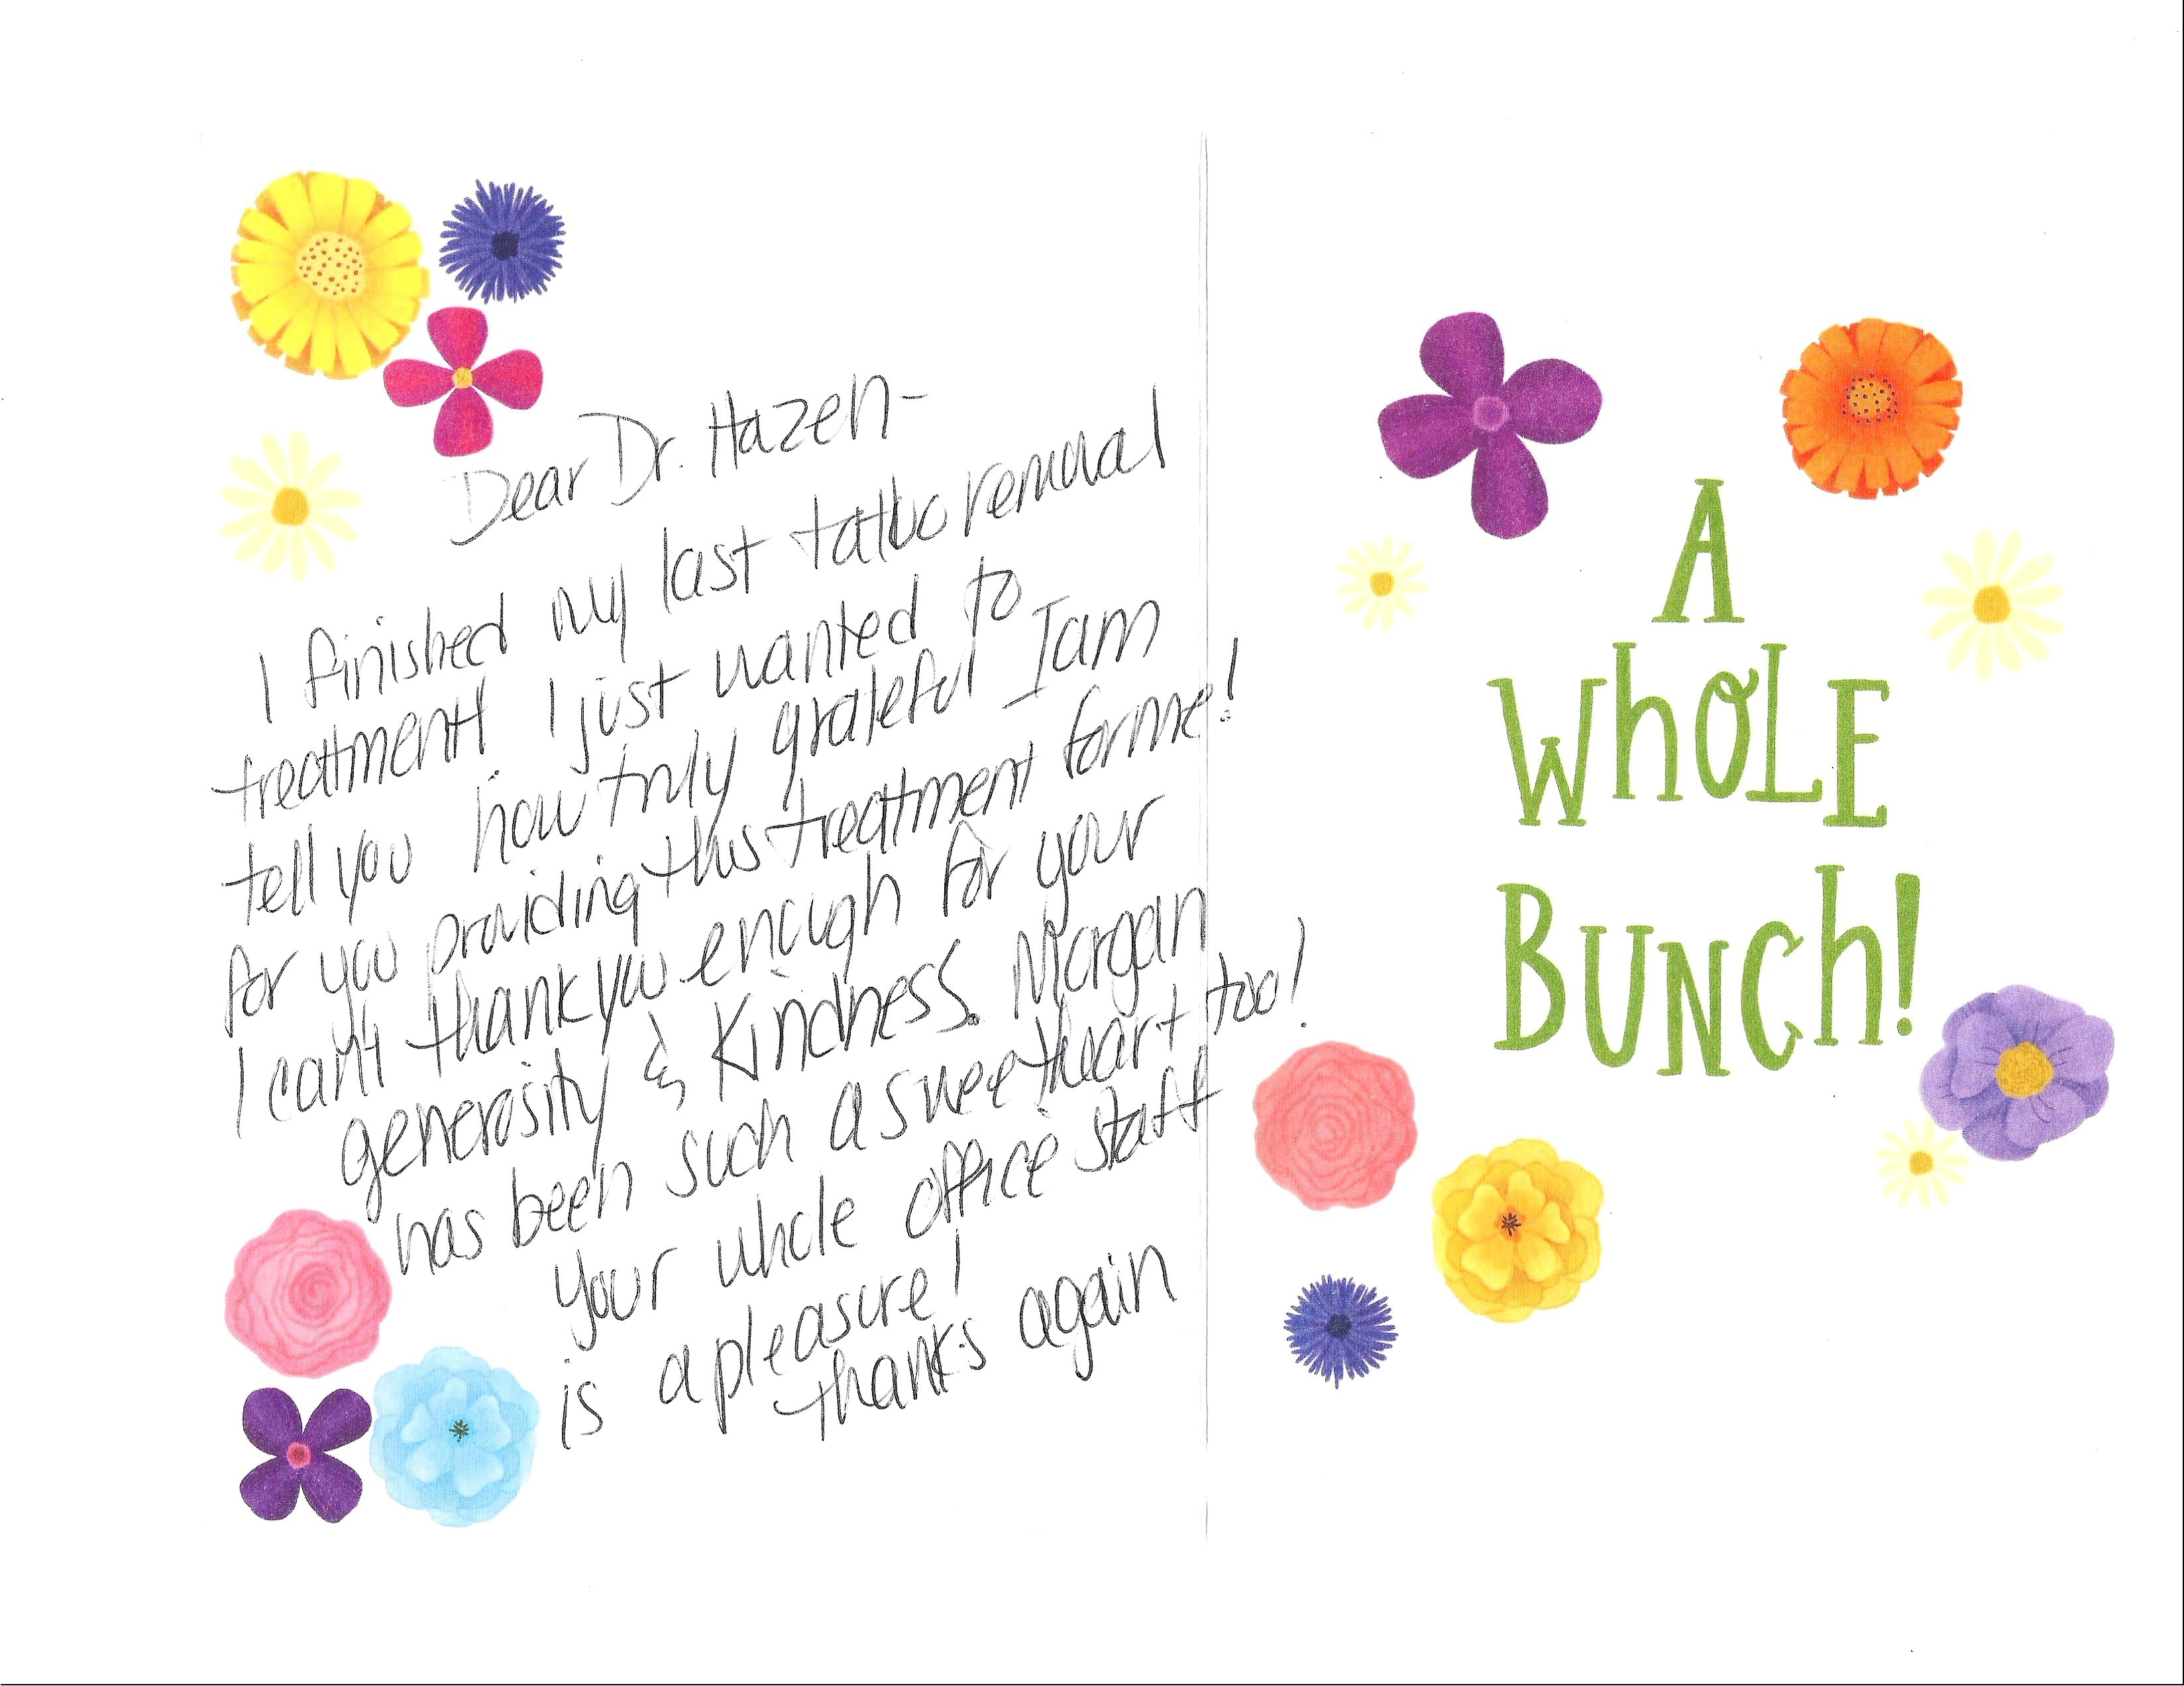 Dear Dr. Hazen-
I finished my last tattoo removal
treatment! I just wanted to
tell you how truly grateful I am
for you providing this treatment for me!
I can't thank you enough for your
generosity & Kindness. Morgan
has been such a sweetheart too!
your whole office staff
is a pleasure!
thanks again
A
WhOLE
BUNCh!